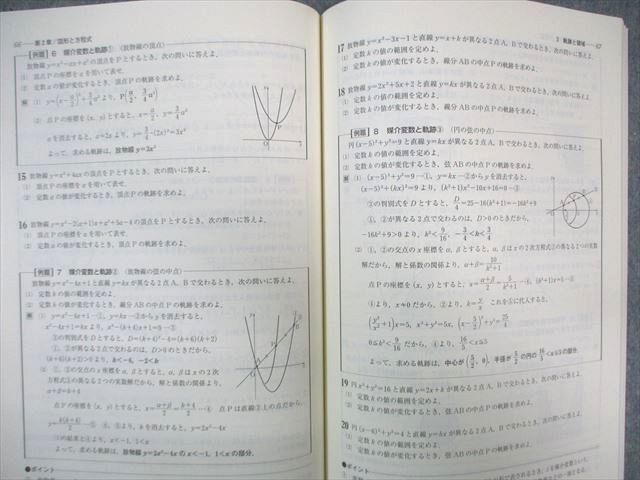 66 第2章／図形と方程式
例題 6 媒介変数と軌跡① (放物線の頂点)
放物線 y=x²-ax+a² の頂点をPとするとき，次の問いに答えよ。
(1) 頂点Pの座標を a を用いて表せ。
(2) 定数 a の値が変化するとき，頂点Pの軌跡を求めよ。
(2) 点Pの座標を (x, y) とすると，x=a/2，y=3/4a²
a を消去すると，a=2x より，y=3/4・(2x)²=3x²
よって，求める軌跡は，
15 の頂点をPとするとき，次の問いに答えよ。
(1) 頂点Pの座標を a を用いて表せ。
(2) 定数 a の値が変化するとき，頂点Pの軌跡を求めよ。
16 の頂点をPとするとき，次の問いに答えよ。
(1) 頂点Pの座標を a を用いて表せ。
(2) 定数 a の値が変化するとき，頂点Pの軌跡を求めよ。
例題 7 媒介変数と軌跡② (放物線の弦の中点)
放物線 y=x²-4x+1 と直線 y=kx が異なる2点A，Bで交わるとき，次の問いに答えよ。
(1) 定数 k の値の範囲を定めよ。
(2) 定数 k の値が変化するとき，線分ABの中点Pの軌跡を求めよ。
解 (1) y=x²-4x+1…①，y=kx…②から y を消去すると，
x²-4x+1=kx より，x²-(k+4)x+1=0…③
③の判別式をDとすると，D=(k+4)²-4=(k+6)(k+2)
①，②が異なる2点で交わるのは，D>0 のときだから，
(k+6)(k+2)>0 より，k<-6，-2<k
(2) ①，②の交点の x 座標を α，β とすると，α，β は x の2次
方程式③の異なる2つの実数解だから，解と係数の関係より，
α+β=k+4
点Pの座標を (x, y) とすると，x=(α+β)/2=(k+4)/2…④ 点Pは直線②上の点だから，
y=k(k+4)/2…⑤ ④，⑤より，k を消去すると，y=2x²-4x
①の結果と④より，x<-1，1<x
よって，求める軌跡は，放物線 y=2x²-4x の x<-1，1<x の部分．
●ポイント
3 軌跡と領域 67
17 放物線 y=x²-3x-1 と直線 y=x+k が異なる2点A，Bで交わるとき，次の問いに答えよ。
(1) 定数 k の値の範囲を定めよ。
(2) 定数 k の値が変化するとき，線分ABの中点Pの軌跡を求めよ。
18 放物線 y=2x²+5x+2 と直線 y=kx が異なる2点A，Bで交わるとき，次の問いに答えよ。
(1) 定数 k の値の範囲を定めよ。
(2) 定数 k の値が変化するとき，線分ABの中点Pの軌跡を求めよ。
例題 8 媒介変数と軌跡③ (円の弦の中点)
円 (x-5)²+y²=9 と直線 y=kx が異なる2点A，Bで交わるとき，次の問いに答えよ。
(1) 定数 k の値の範囲を定めよ。
(2) 定数 k の値が変化するとき，弦ABの中点Pの軌跡を求めよ。
解 (1) (x-5)²+y²=9…①，y=kx…②から y を消去すると，
(x-5)²+(kx)²=9 より，(k²+1)x²-10x+16=0…③
③の判別式をDとすると，D/4=25-16(k²+1)=-16k²+9
①，②が異なる2点で交わるのは，D>0 のときだから，
-16k²+9>0 より，k²<9/16，-3/4<k<3/4
(2) ①，②の交点の x 座標を α，β とすると，α，β は x の2次方程式③の異なる2つの実数
解だから，解と係数の関係より，α+β=10/(k²+1)
点Pの座標を (x, y) とすると，x=(α+β)/2=5/(k²+1)…④，(k²+1)x=5…⑤
④より，x≠0 だから，②より，k=y/x これを⑤に代入すると，
(y²/x²+1)x=5，x²+y²=5x，(x-5/2)²+y²=25/4
0≦k²<9/16 だから，④より，16/5<x≦5
よって，求める軌跡は，中心が (5/2, 0)，半径が 5/2 の円の 16/5<x≦5 の部分．
19 円 x²+y²=16 と直線 y=2x+k が異なる2点A，Bで交わるとき，次の問いに答えよ。
(1) 定数 k の値の範囲を定めよ。
(2) 定数 k の値が変化するとき，弦ABの中点Pの軌跡を求めよ。
20 円 (x-4)²+y²=4 と直線 y=kx が異なる2点A，Bで交わるとき，次の問いに答えよ。
(1) 定数 k の値の範囲を定めよ。
(2) 定数 k の値が変化するとき，弦ABの中点Pの軌跡を求めよ。
●ポイント